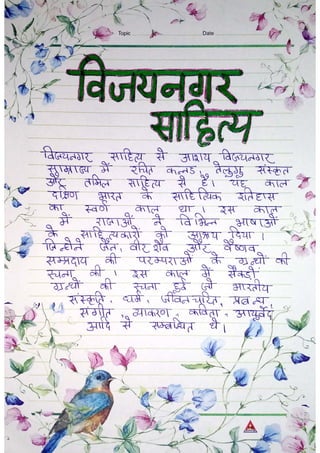 Topic Date
विजयनगर
साहित्य
विजयनगर साहित्य से आशय विजयनगर
साम्राज्य में रचित कन्नड, तेलुगु संस्कृत
और तमिल साहित्य से है। यह काल
दक्षिण भारत के साहित्यिक इतिहास
का स्वर्ण काल था। इस काल
में राजाओं ने विभिन्न भाषाओं
के साहित्यकारों को आश्रय दिया।
जिन्होंने जैन, वीर शैव और वैष्णव
सम्प्रदाय की परम्पराओं के ग्रन्थों की
रचना की। इस काल में सैंकड़ों
ग्रन्थों की रचना हुई जो भारतीय
संस्कृति, धर्म, जीवन चरित, प्रबन्ध,
संगीत, व्याकरण, कविता, आयुर्वेद
आदि से सम्बंधित थे।